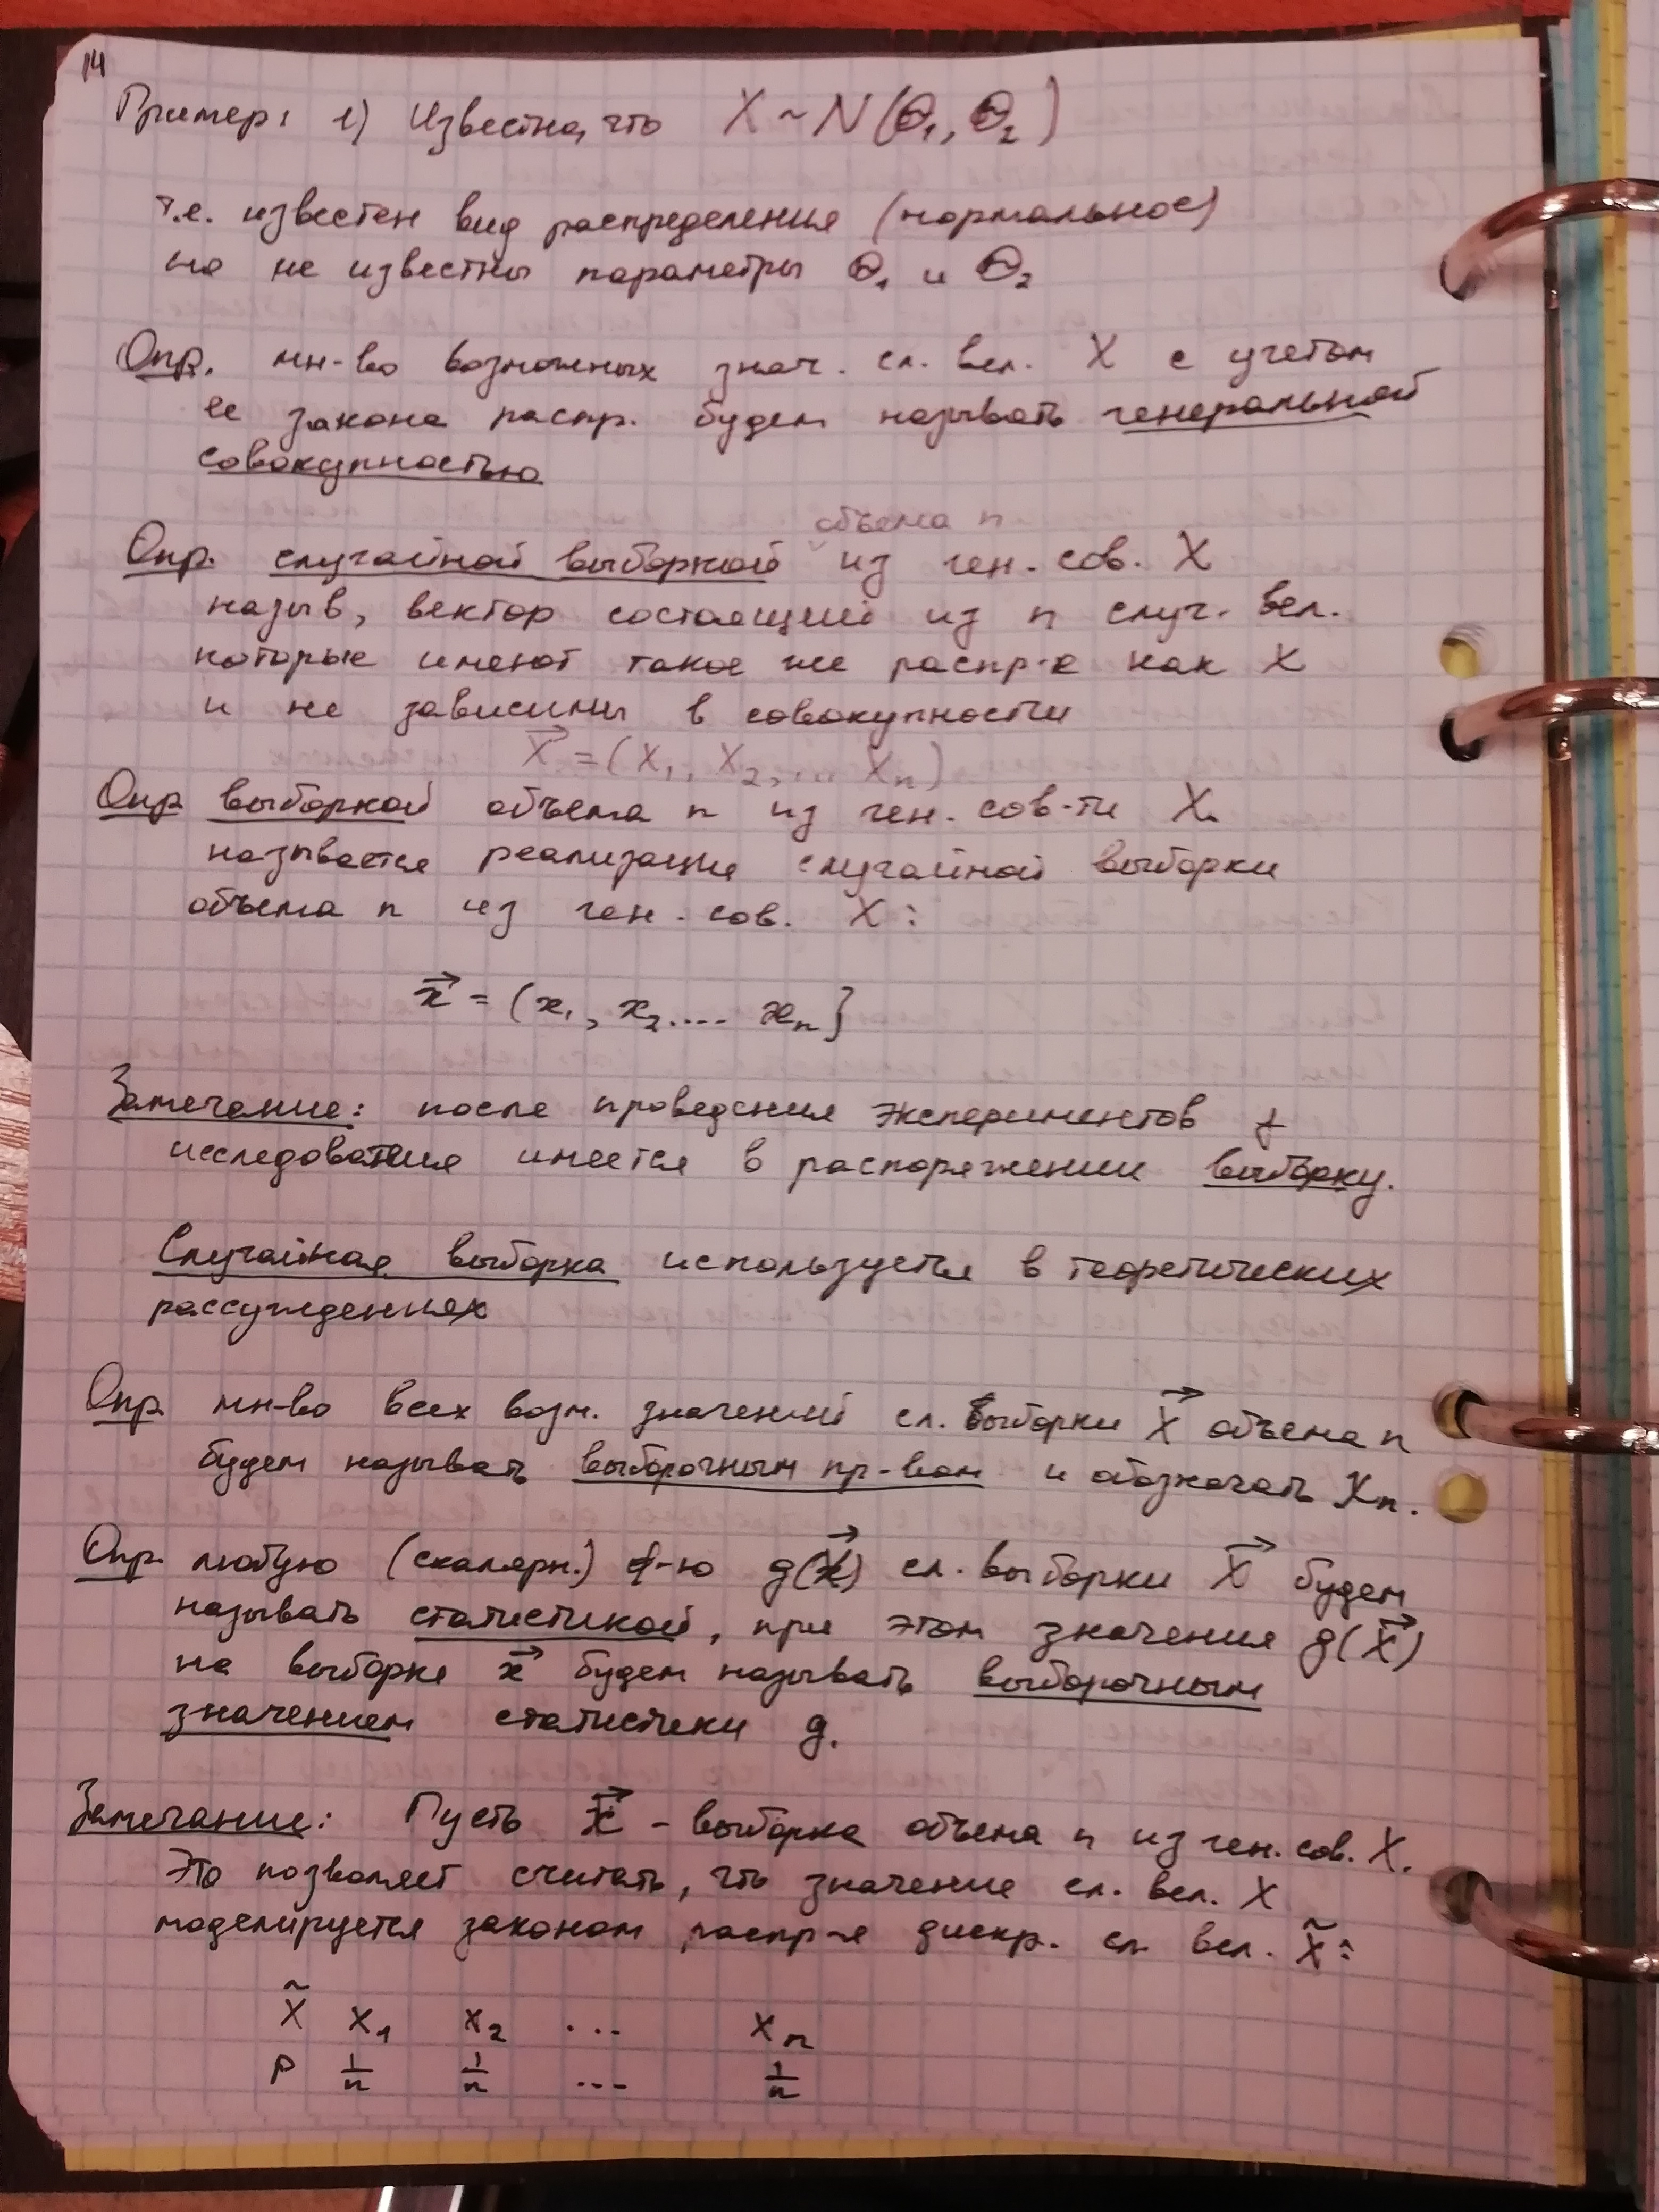 14
Пример: 1) Известно, что X ~ N(Θ₁, Θ₂)
т.е. известен вид распределения (нормальное)
но не известны параметры Θ₁ и Θ₂
Опр. мн-во возможных знач. сл. вел. X с учетом
ее закона распр. будем называть генеральной
совокупностью
объема n
Опр. случайной выборкой из ген. сов. X
назыв, вектор состоящий из n случ. вел.
которые имеют такое же распр-е как X
и не зависимы в совокупности
X⃗ = (X₁, X₂, ... Xₙ)
Опр выборкой объема n из ген. сов-ти X.
называется реализация случайной выборки
объема n из ген. сов. X:
x⃗ = (x₁, x₂.... xₙ}
Замечание: после проведения экспериментов у
исследователя имеется в распоряжении выборку.
Случайная выборка используется в теоретических
рассуждениях
Опр. мн-во всех возм. значений сл. выборки X⃗ объема n
будем называть выборочным пр-вом и обозначать Xₙ.
Опр. любую (скалярн.) ф-ю g(x⃗) сл. выборки X⃗ будем
называть статистикой, при этом значения g(X⃗)
на выборке x⃗ будем называть выборочным
значением статистики g.
Замечание: Пусть x⃗ - выборка объема n из ген. сов. X.
Это позволяет считать, что значение сл. вел. X
моделируется законом распр-я дискр. сл. вел. X̃:
X̃ x₁ x₂ ... xₙ
P 1/n 1/n ... 1/n